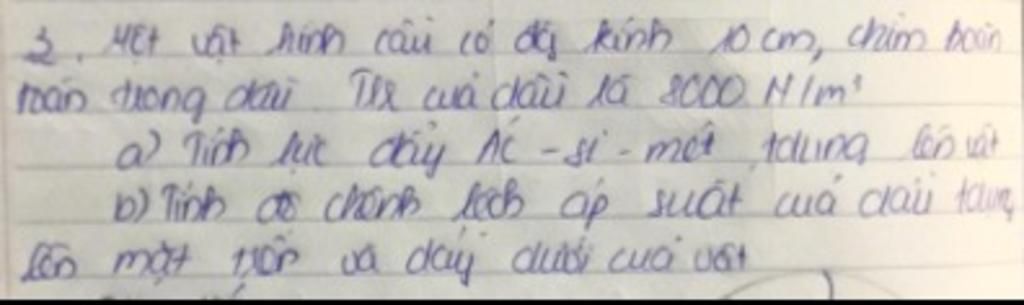 3. Một vật hình cầu có đg kính 10 cm, chìm hoàn
toàn trong dầu TLR của dầu là 8000 N/m³
a) Tính lực đẩy Ác-si-mét tdụng lên vật
b) Tính độ chênh lệch áp suất của dầu tdụng
lên mặt trên và đáy dưới của vật